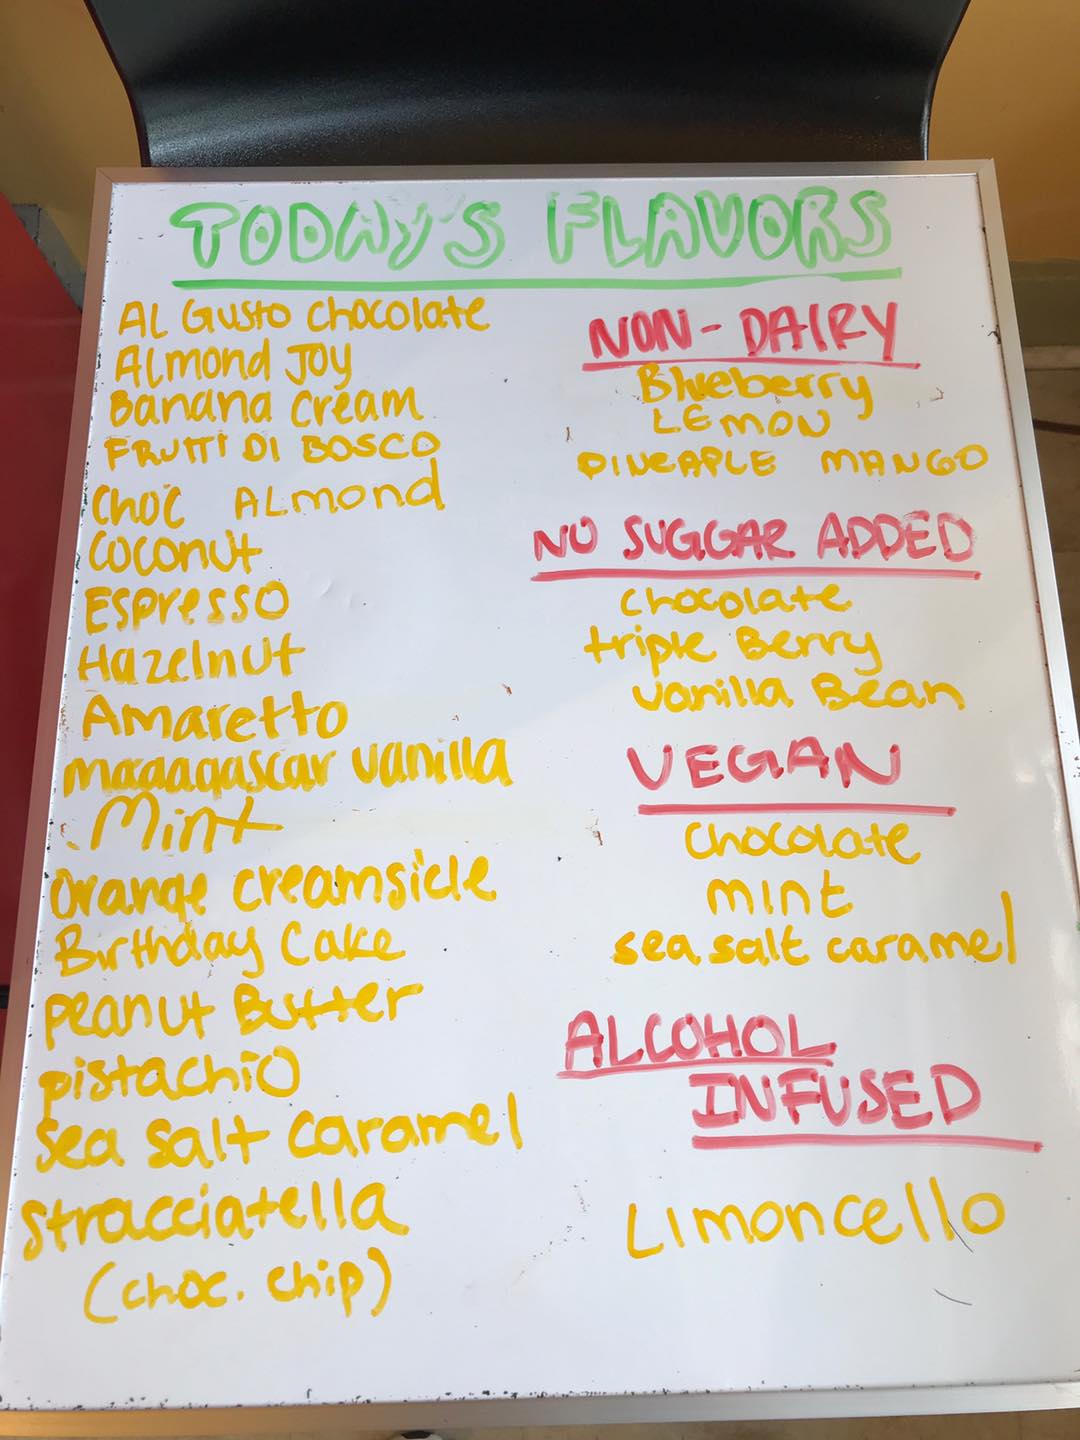 TODAY'S FLAVORS
AL GUSTO chocolate
Almond Joy
Banana cream
FRUTTI DI BOSCO
CHOC ALMOND
COCONUT
ESPRESSO
Hazelnut
Amaretto
madagascar vanilla
Mint
Orange creamsicle
Birthday Cake
peanut Butter
pistachio
Sea Salt caramel
Stracciatella
(choc. chip)
NON-DAIRY
Blueberry
LEMON
PINEAPLE MANGO
NO SUGGAR ADDED
chocolate
triple Berry
vanilla Bean
VEGAN
chocolate
mint
sea salt caramel
ALCOHOL
INFUSED
LIMONCELLO